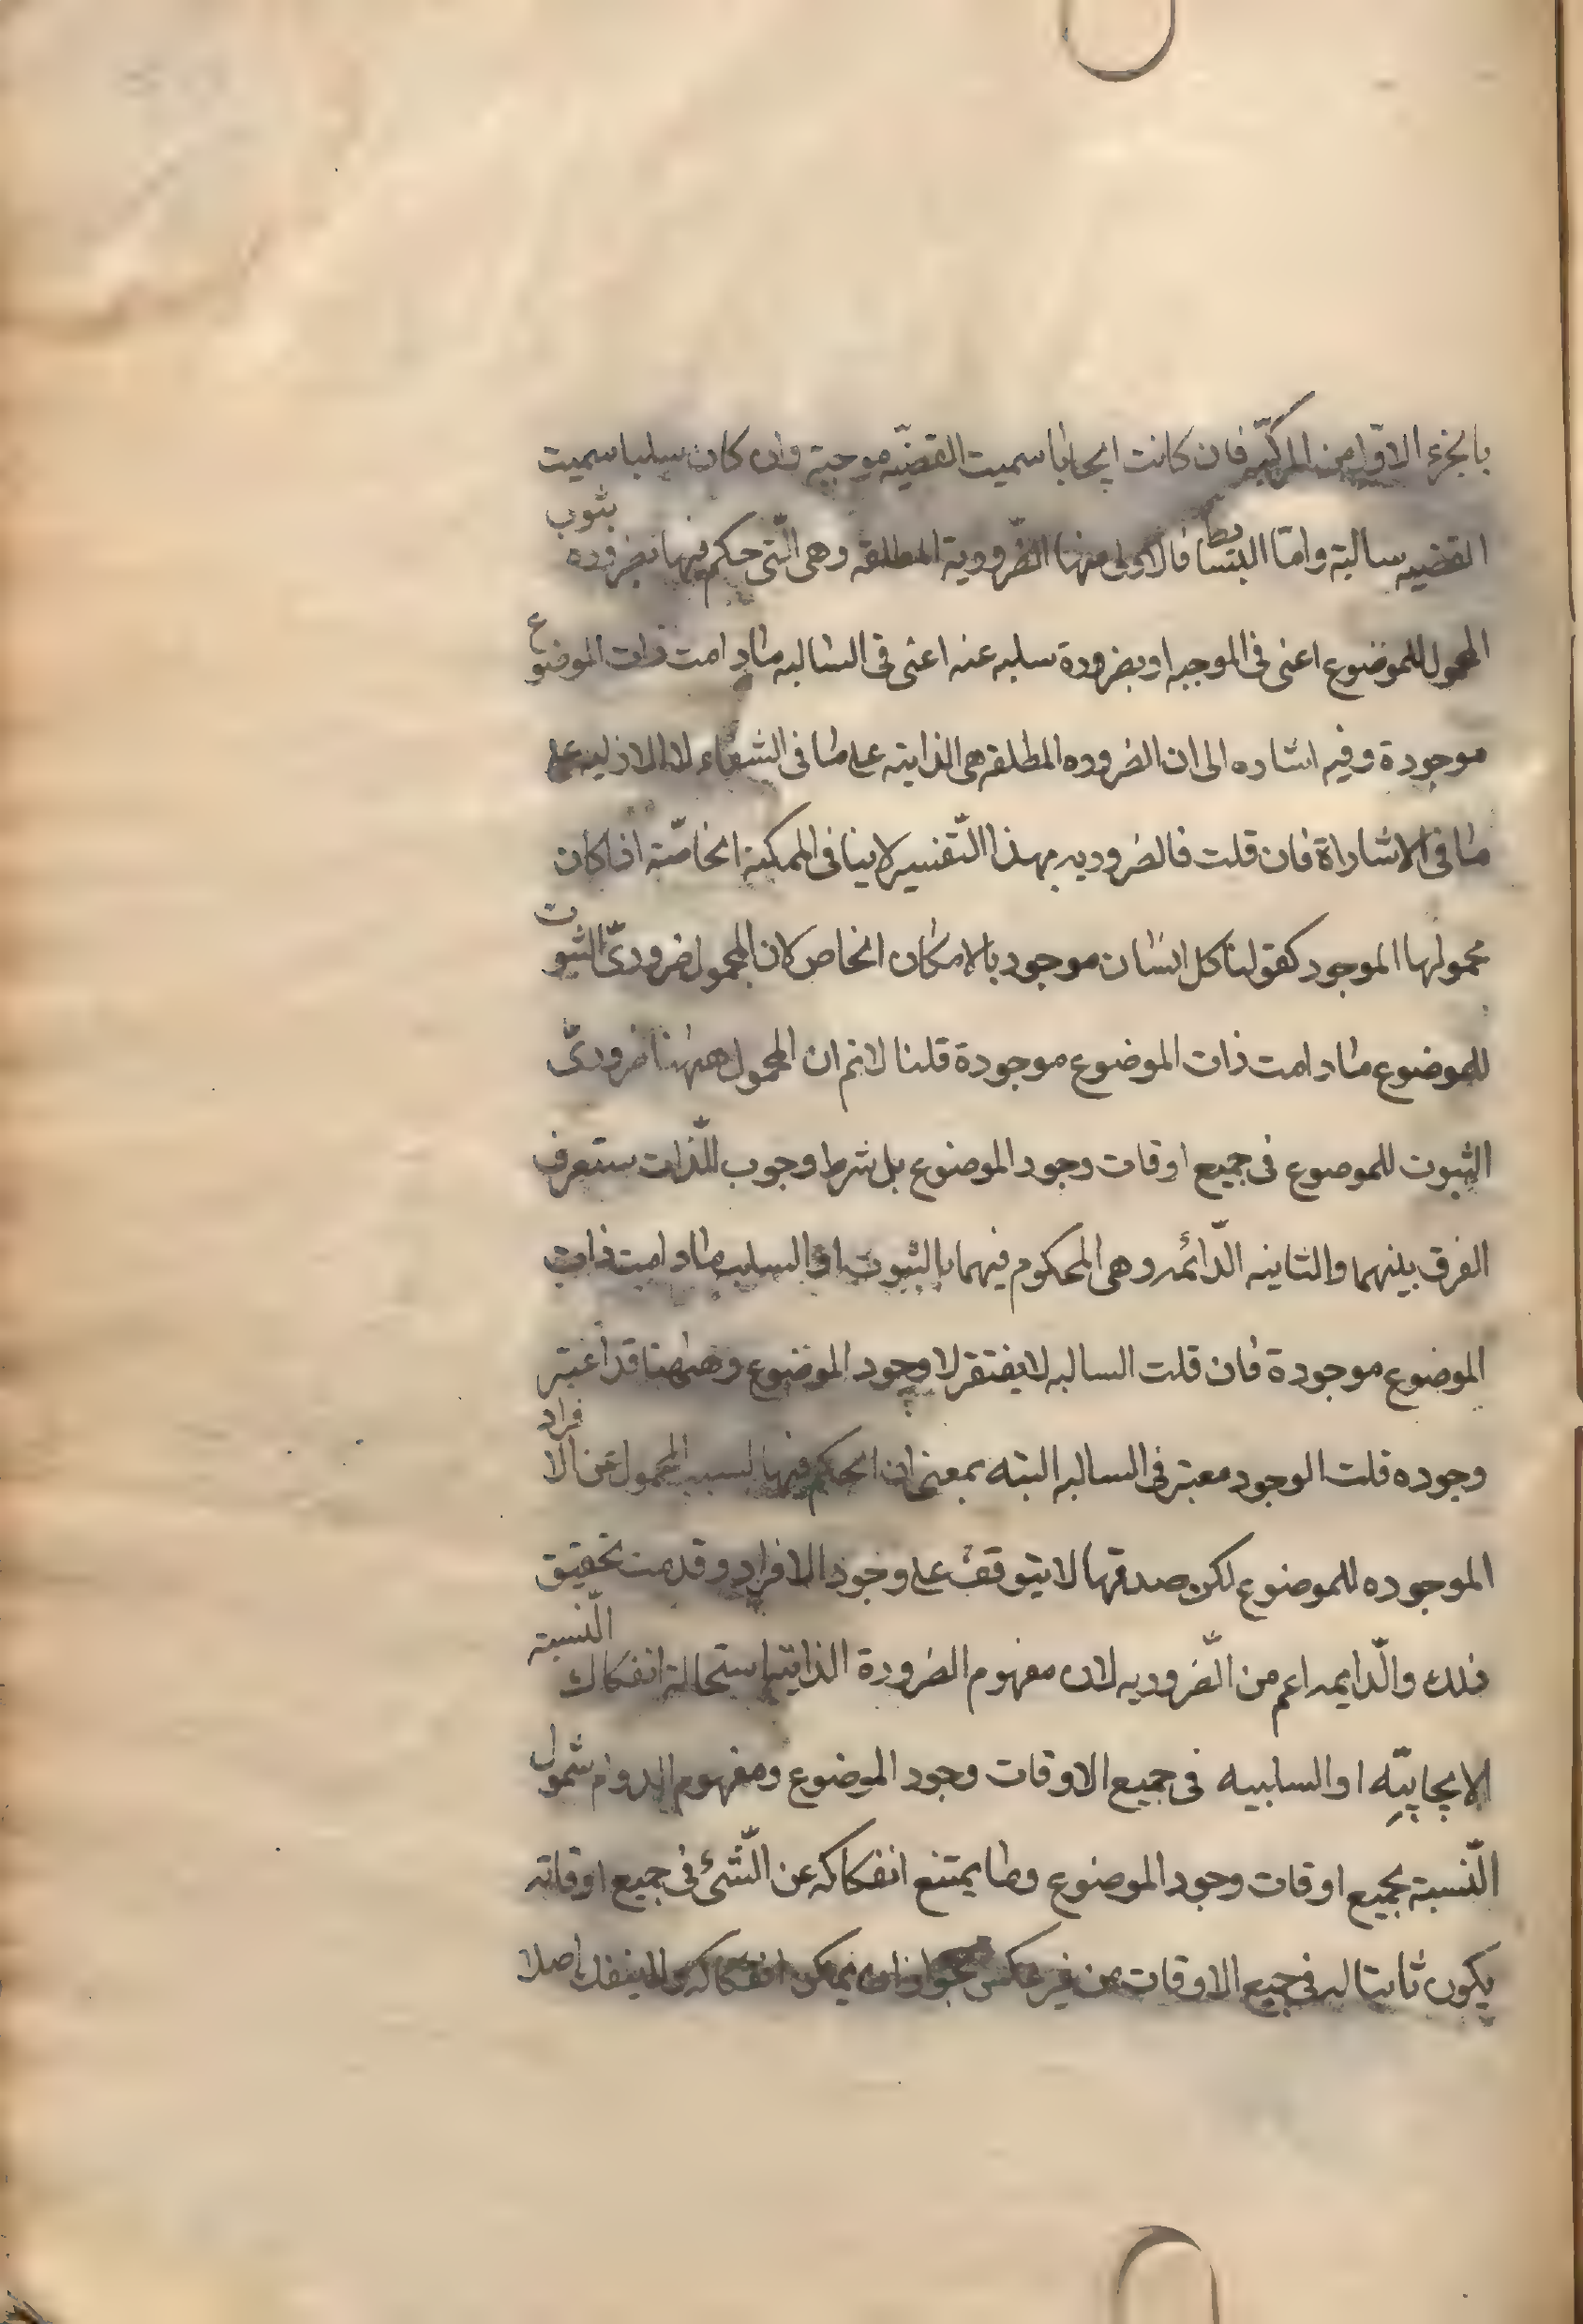 بالجزء الاول من المركبة فان كانت ايجابا سميت القضيّه موجبة وان كان سلبا سميت
القضيه سالبة وامّا البسايط فالاولى منها الضّرورية المطلقه وهى الّتى حكم فيها بضروره بثوب
المحمول للموضوع اعنى فى الموجبه او بضرورة سلبه عنه اعنى فى السالبه مادامت ذات الموضوع
موجودة وفيه اشاره الى ان الضروره المطلقه هى الذاتيه على ما فى الشفاء لا الازليه على
ما فى الاشاراة فان قلت فالضروريه بهذا التّفسير لا ينافى الممكنة الخاصّة اذا كان
محمولها الموجود كقولنا كل انسان موجود بالامكان الخاص لان المحمول ضرورىّ الثبوت
للموضوع مادامت ذات الموضوع موجودة قلنا لانم ان المحمول ههنا ضرورىّ
الثبوت للموضوع فى جميع اوقات وجود الموضوع بل شرط وجوب للّذات ستعرف
الفرق بينهما والثانيه الدّائمه وهى المحكوم فيهما بالثبوت او السلب مادامت ذات
الموضوع موجودة فان قلت السالبه لا يفتقر لا وجود الموضوع وههنا قد اعتبر
وجوده قلت الوجود معتبر فى السالبه البته بمعنى ان الحكم فيها لسبب المحمول عن الافراد
الموجوده للموضوع لكن صدقها لا يتوقف على وجود الافراد وقد مت تحقيق
ذلك والدّايمه اعم من الضّروريه لان مفهوم الضرورة الذاتية استحالة انفكاك النّسبة
الايجابيّه او السلبيه فى جميع الاوقات وجود الموضوع ومفهوم الدوام شمول
النّسبة بجميع اوقات وجود الموضوع وما يمتنع انفكاكه عن الشّئ فى جميع اوقاته
يكون ثابتا له فى جميع الاوقات من غير عكس لجواز ان يمكن انفكاكه ولا ينفك اصلا